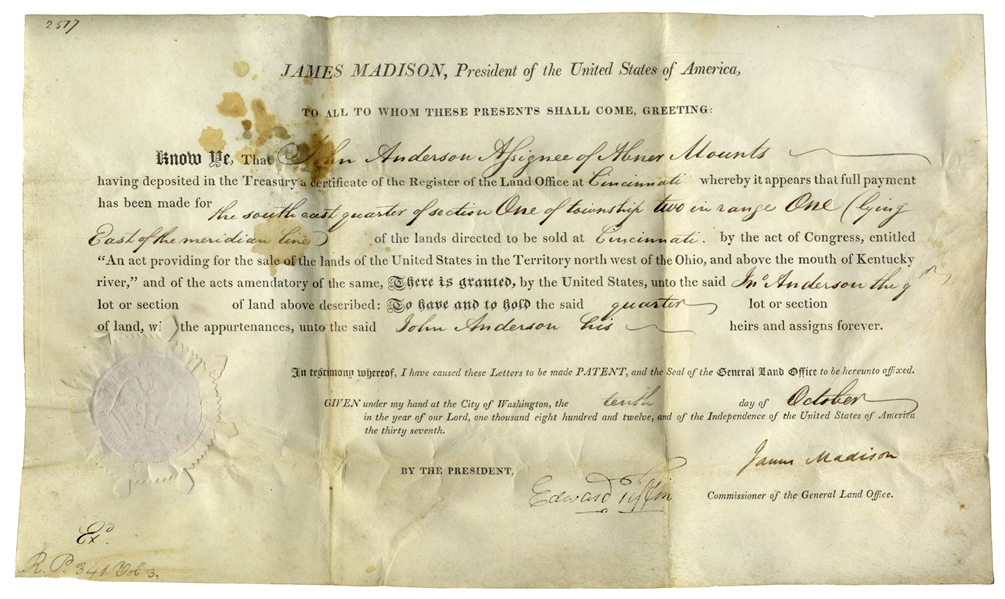 2517
JAMES MADISON, President of the United States of America,
TO ALL TO WHOM THESE PRESENTS SHALL COME, GREETING:
Know Ye, That John Anderson Assignee of Abner Mounts
having deposited in the Treasury a certificate of the Register of the Land Office at Cincinnati whereby it appears that full payment
has been made for the south east quarter of section One of township two in range One (lying
East of the meridian line) of the lands directed to be sold at Cincinnati. by the act of Congress, entitled
“An act providing for the sale of the lands of the United States in the Territory north west of the Ohio, and above the mouth of Kentucky
river,” and of the acts amendatory of the same, There is granted, by the United States, unto the said Jno Anderson the qr
lot or section of land above described: To have and to hold the said quarter lot or section
of land, wi the appurtenances, unto the said John Anderson his heirs and assigns forever.
In testimony whereof, I have caused these Letters to be made PATENT, and the Seal of the General Land Office to be hereunto affixed.
GIVEN under my hand at the City of Washington, the tenth day of October
in the year of our Lord, one thousand eight hundred and twelve, and of the Independence of the United States of America
the thirty seventh.
James Madison
BY THE PRESIDENT,
Edward Tiffin
Commissioner of the General Land Office.
Exd.
R. P. 341 Vol 3.